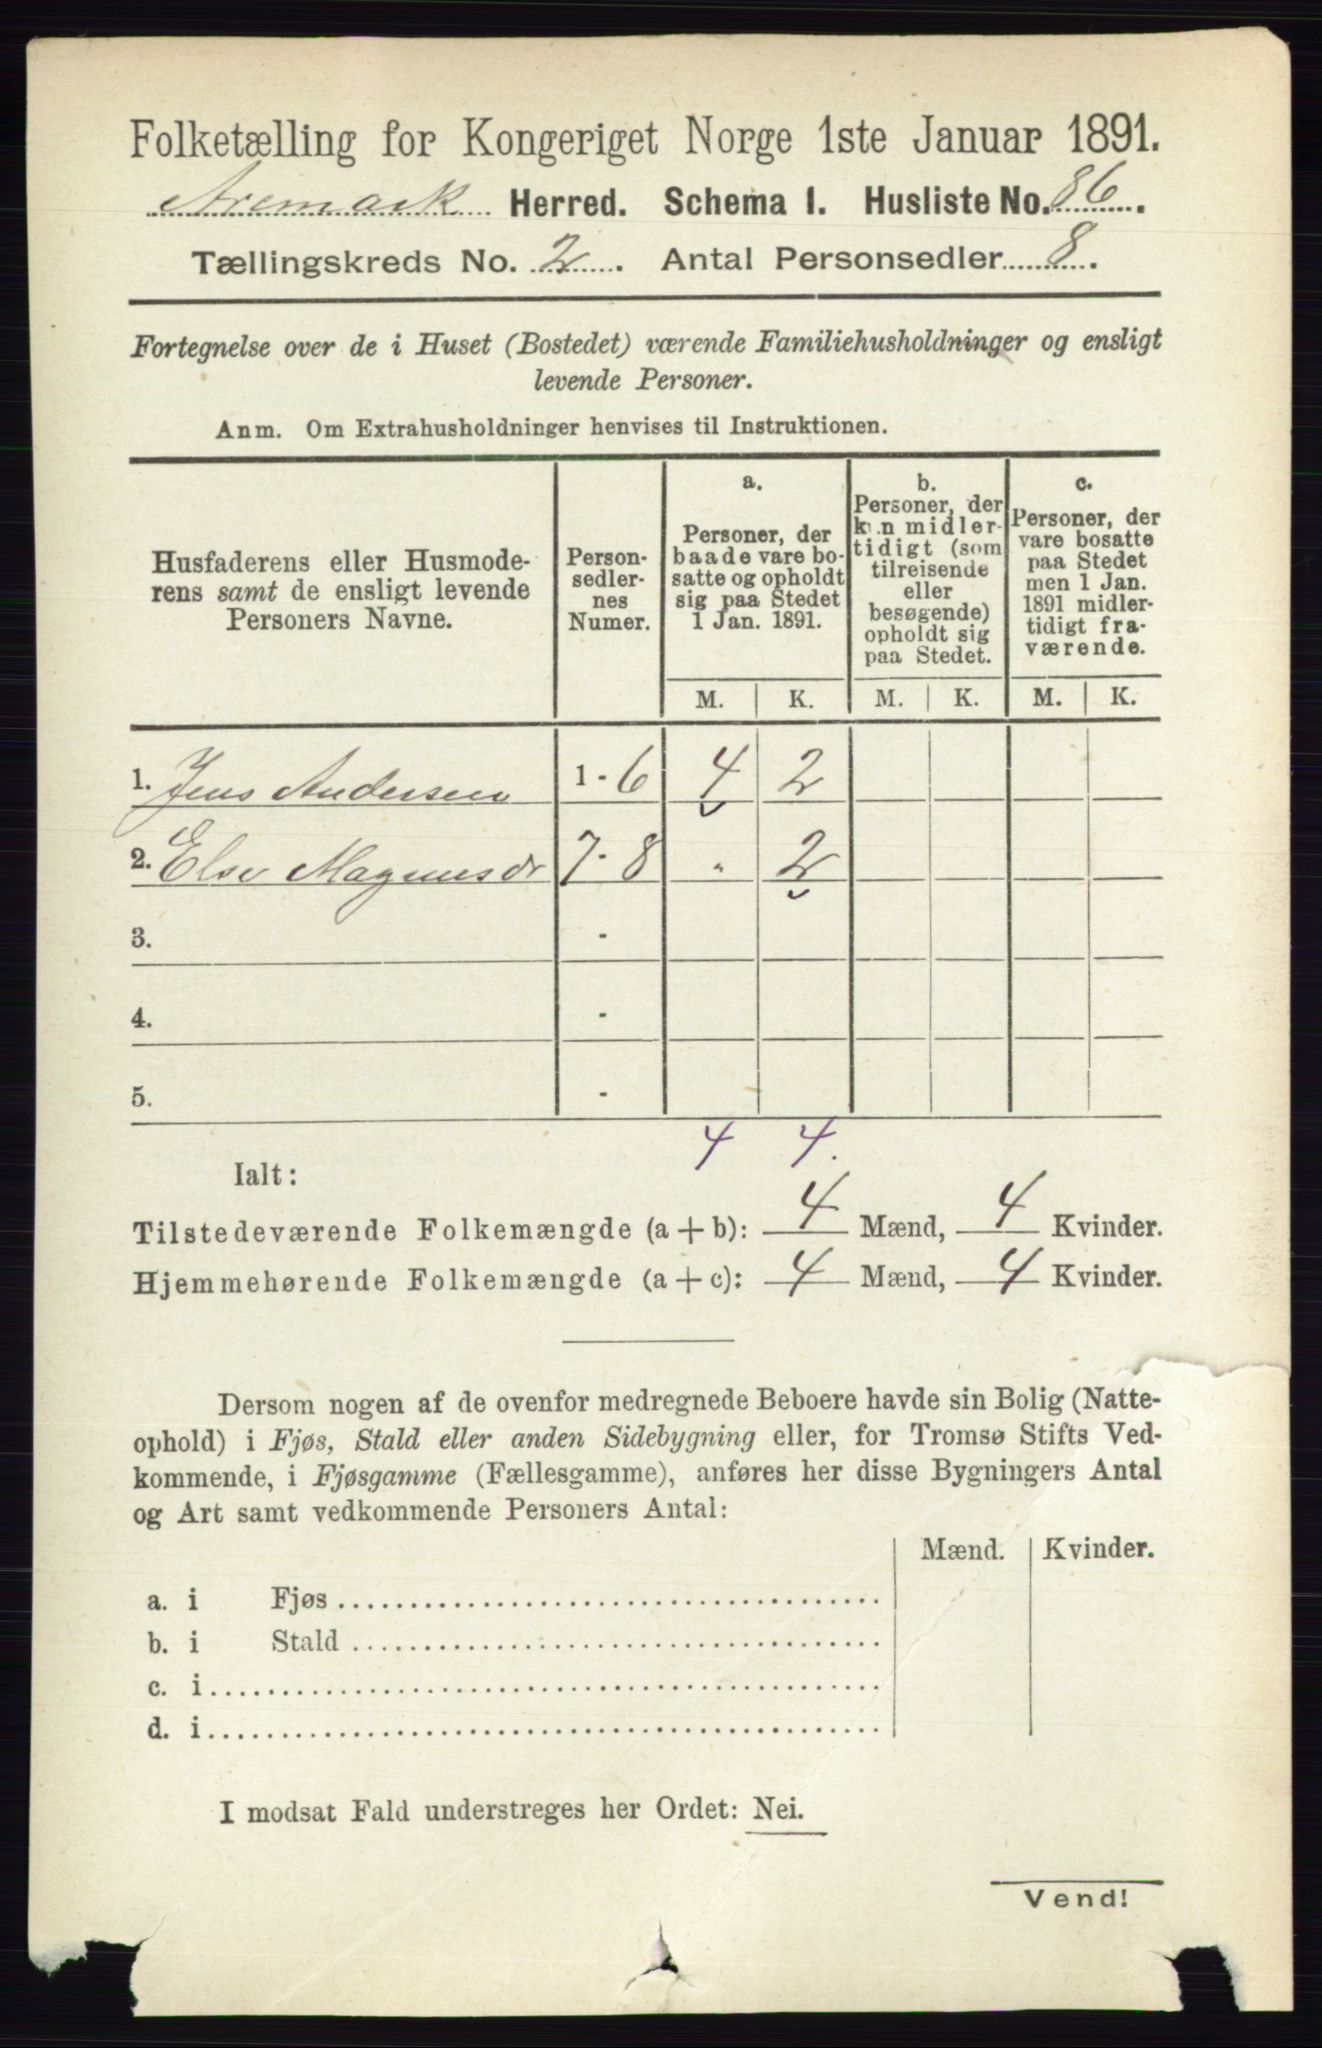 Folketælling for Kongeriget Norge 1ste Januar 1891.
Aremark Herred. Schema I. Husliste No. 86.
Tællingskreds No. 2. Antal Personsedler 8.
Fortegnelse over de i Huset (Bostedet) værende Familiehusholdninger og ensligt
levende Personer.
Anm. Om Extrahusholdninger henvises til Instruktionen.
Husfaderens eller Husmode-
rens samt de ensligt levende
Personers Navne.
Person-
sedler-
nes
Numer.
a.
Personer, der
baade vare bo-
satte og opholdt
sig paa Stedet
1 Jan. 1891.
b.
Personer, der
kun midler-
tidigt (som
tilreisende
eller
besøgende)
opholdt sig
paa Stedet.
c.
Personer, der
vare bosatte
paa Stedet
men 1 Jan.
1891 midler-
tidigt fra-
værende.
M. K. M. K. M. K.
1. Jens Andersen 1-6 4 2
2. Else Magnusdr 7-8 " 2
3. -
4. -
5. -
4 4.
Ialt:
Tilstedeværende Folkemængde (a+b): 4 Mænd, 4 Kvinder.
Hjemmehørende Folkemængde (a+c): 4 Mænd, 4 Kvinder.
Dersom nogen af de ovenfor medregnede Beboere havde sin Bolig (Natte-
ophold) i Fjøs, Stald eller anden Sidebygning eller, for Tromsø Stifts Ved-
kommende, i Fjøsgamme (Fællesgamme), anføres her disse Bygningers Antal
og Art samt vedkommende Personers Antal:
Mænd. Kvinder.
a. i Fjøs
b. i Stald
c. i
d. i
I modsat Fald understreges her Ordet: Nei.
Vend!